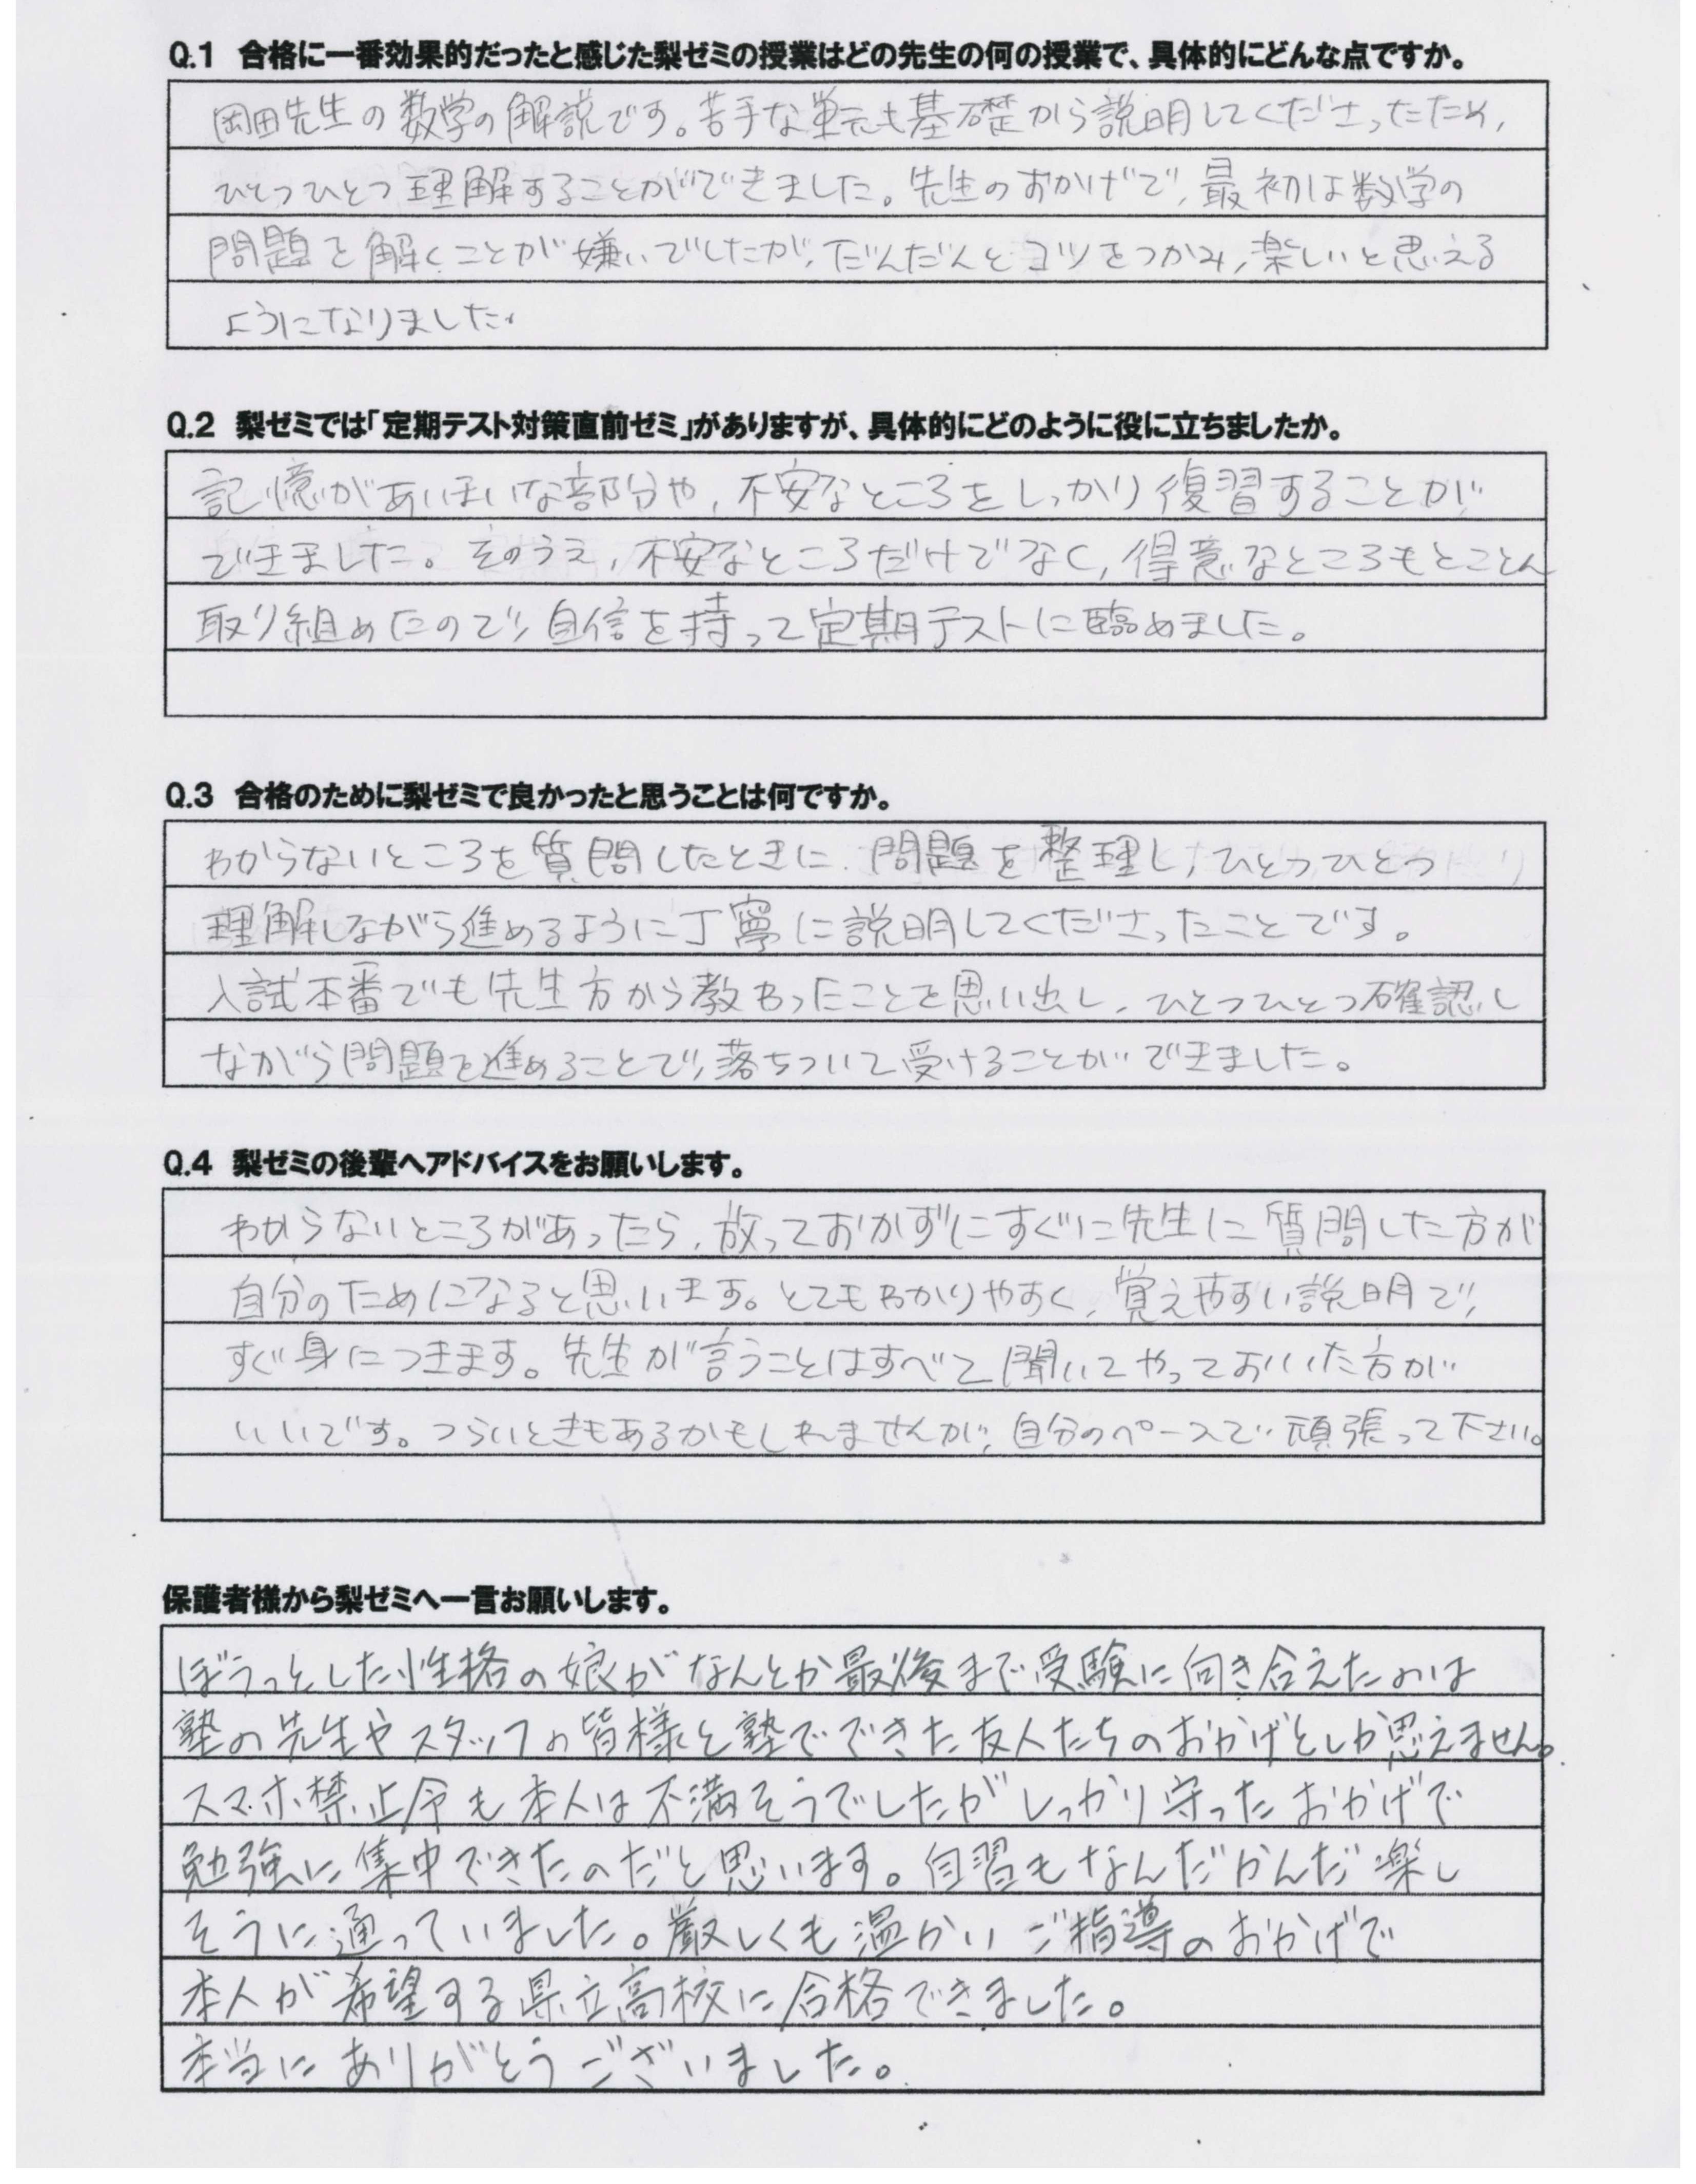 Q.1 合格に一番効果的だったと感じた梨ゼミの授業はどの先生の何の授業で、具体的にどんな点ですか。
岡田先生の数学の解説です。苦手な単元も基礎から説明してくださったため,
ひとつひとつ理解することができました。先生のおかげで,最初は数学の
問題を解くことが嫌いでしたが,だんだんとコツをつかみ,楽しいと思える
ようになりました。
Q.2 梨ゼミでは「定期テスト対策直前ゼミ」がありますが、具体的にどのように役に立ちましたか。
記憶があいまいな部分や,不安なところをしっかり復習することが
できました。そのうえ,不安なところだけでなく,得意なところもとことん
取り組めたので,自信を持って定期テストに臨めました。
Q.3 合格のために梨ゼミで良かったと思うことは何ですか。
わからないところを質問したときに,問題を整理し,ひとつひとつ
理解しながら進めるように丁寧に説明してくださったことです。
入試本番でも先生方から教わったことを思い出し,ひとつひとつ確認し
ながら問題を進めることで,落ちついて受けることができました。
Q.4 梨ゼミの後輩へアドバイスをお願いします。
わからないところがあったら,放っておかずにすぐに先生に質問した方が
自分のためになると思います。とてもわかりやすく,覚えやすい説明で,
すぐ身につきます。先生が言うことはすべて聞いてやっておいた方が
いいです。つらいときもあるかもしれませんが,自分のペースで頑張って下さい。
保護者様から梨ゼミへ一言お願いします。
ぼうっとした性格の娘がなんとか最後まで受験に向き合えたのは
塾の先生やスタッフの皆様と塾でできた友人たちのおかげとしか思えません。
スマホ禁止令も本人は不満そうでしたがしっかり守ったおかげで
勉強に集中できたのだと思います。自習もなんだかんだ楽し
そうに通っていました。厳しくも温かいご指導のおかげで
本人が希望する県立高校に合格できました。
本当にありがとうございました。